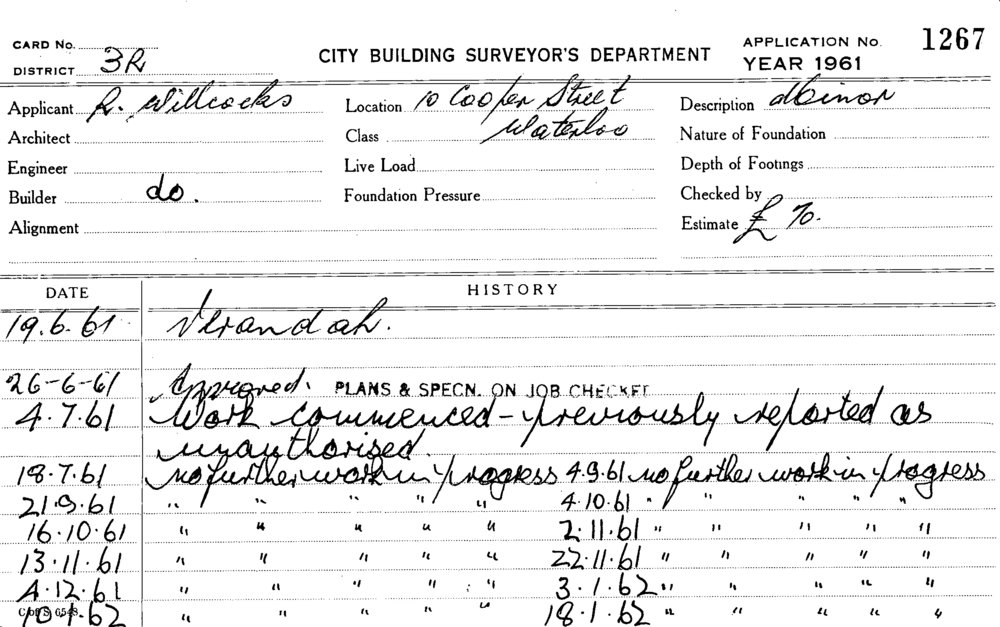 CARD No.
DISTRICT 3R
CITY BUILDING SURVEYOR'S DEPARTMENT
APPLICATION No. 1267
YEAR 1961
Applicant R. Willcocks
Location 10 Cooper Street
Description Minor
Architect
Class Waterloo
Nature of Foundation
Engineer
Live Load
Depth of Footings
Builder do.
Foundation Pressure
Checked by
Alignment
Estimate £
DATE HISTORY
19.6.61 Verandah.
26-6-61 Approved. PLANS & SPECN. ON JOB CHECKET
4.7.61 Work commenced - previously reported as
unauthorised.
18.7.61 no further work in progress 4.9.61 no further work in progress
21.9.61 " " " " " 4.10.61 " " " " "
16.10.61 " " " " " 2.11.61 " " " " "
13.11.61 " " " " " 22.11.61 " " " " "
4.12.61 " " " " " 3.1.62 " " " " "
10.1.62 " " " " " 18.1.62 " " " " "